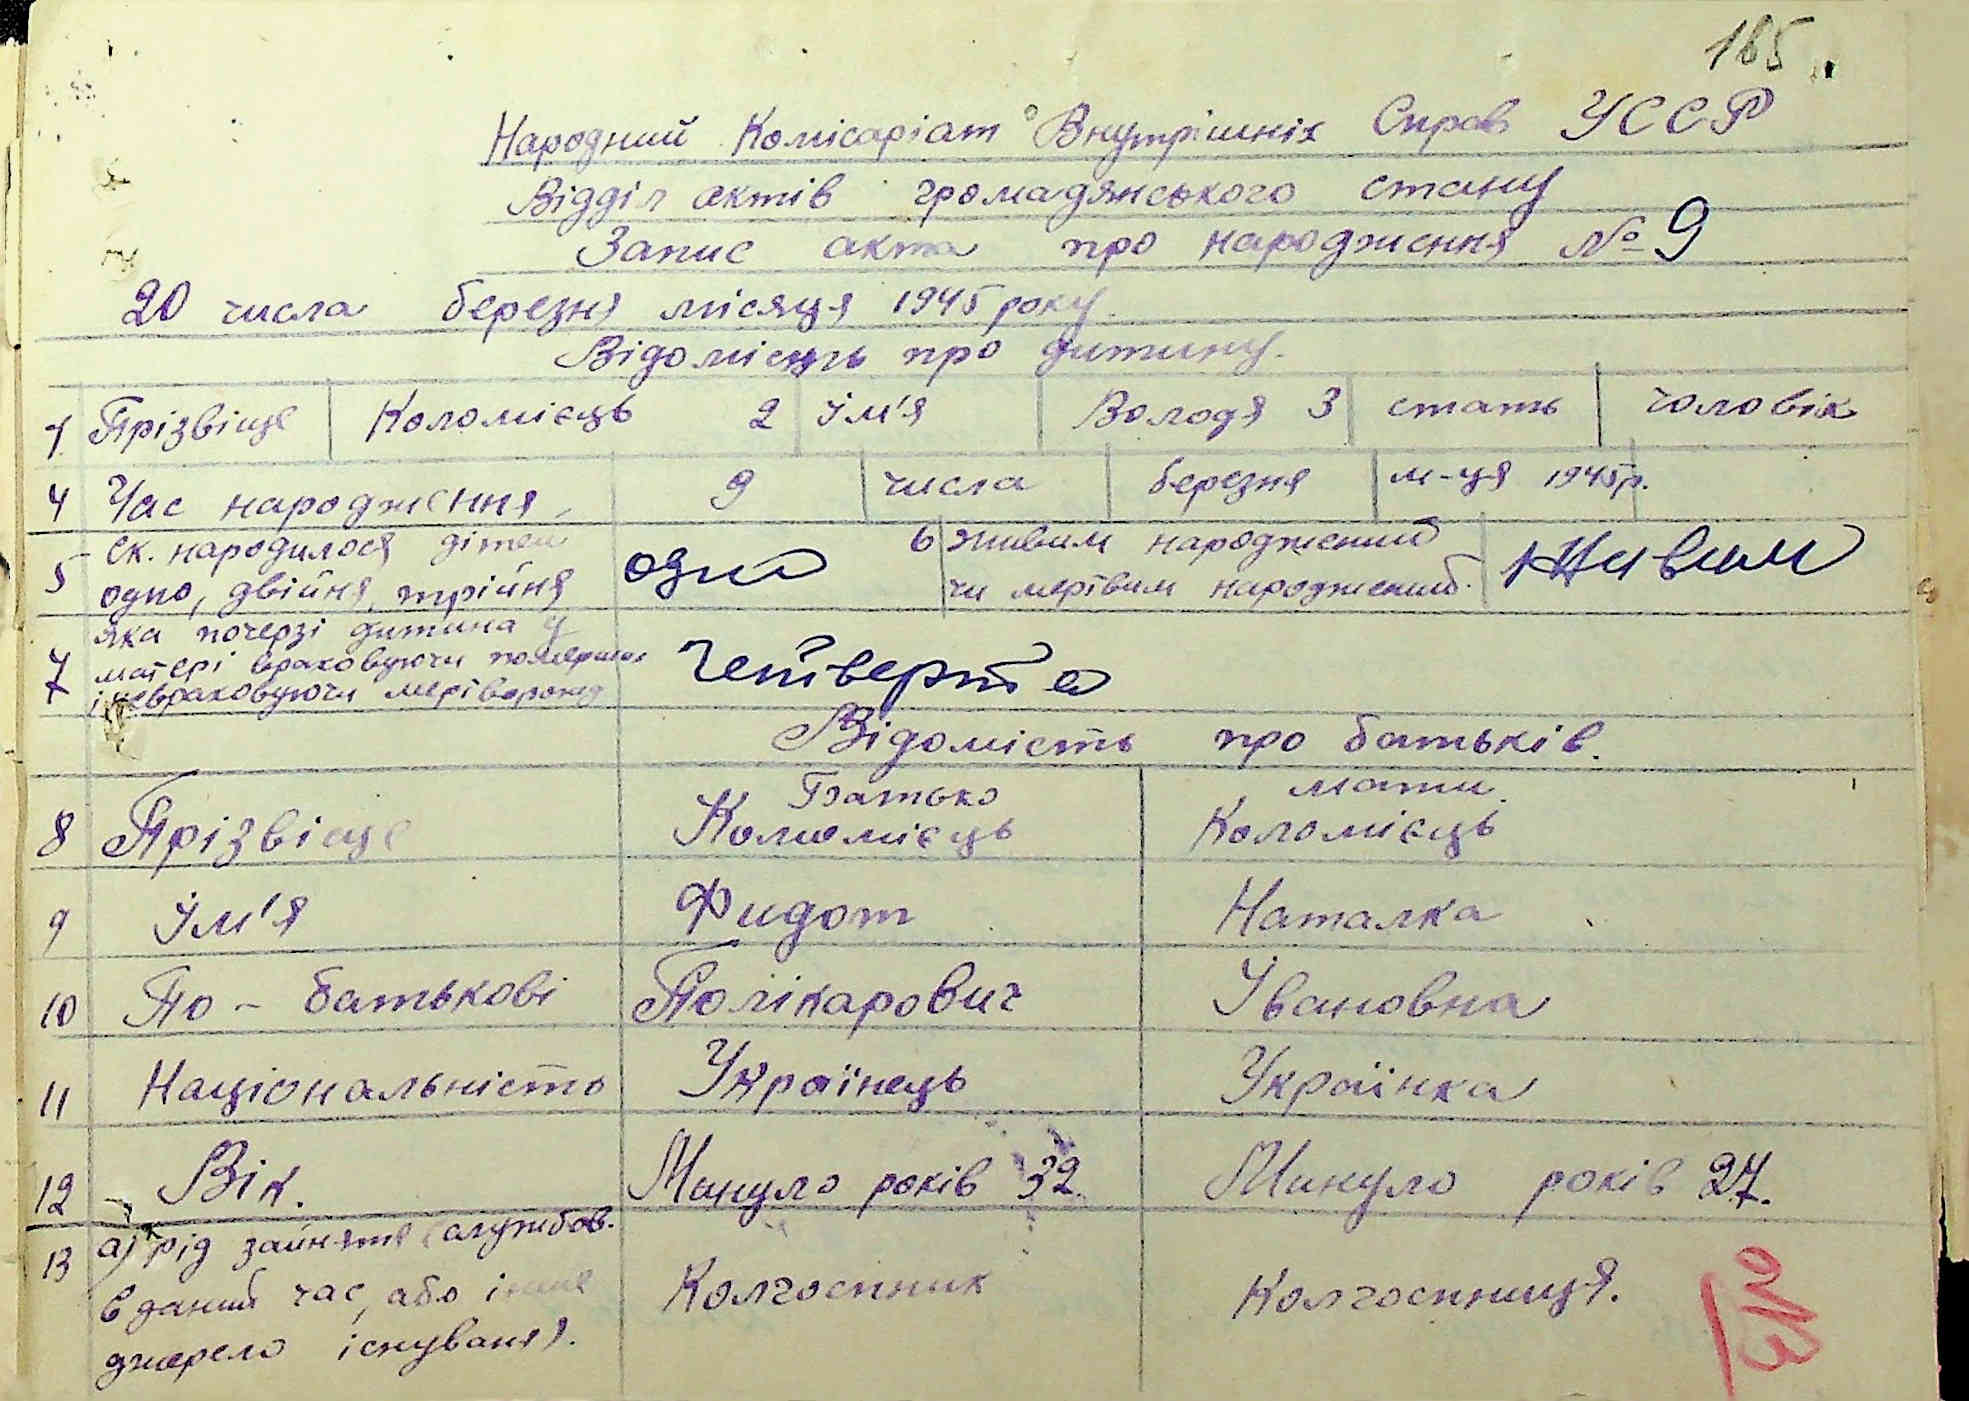 165
Народний Комісаріат Внутрішніх Справ УССР
Відділ актів громадянського стану
Запис акта про народження № 9
20 числа березня місяця 1945 року
Відомість про дитину.
1 Прізвіще Коломієць 2 Їм'я Володя 3 стать чоловік
4 Час народження 9 числа березня м-ця 1945р.
5 Ск. народилося дітей 6 живим народжений
одно, двійня, трійня одно чи мертвим народжений Живим
7 яка почерзі дитина у
матері враховуючи померших Четверта
і невраховуючи мертворожд
Відомість про батьків.
Батько мати.
8 Прізвіще Коломієць Коломієць
9 Їм'я Фидот Наталка
10 По-батькові Полікарович Івановна
11 Національність Українець Українка
12 Вік. Минуло років 32. Минуло років 27.
13 а) рід заняття (службов.
в даний час, або інше Колгоспник Колгоспниця.
джерело існування).
213